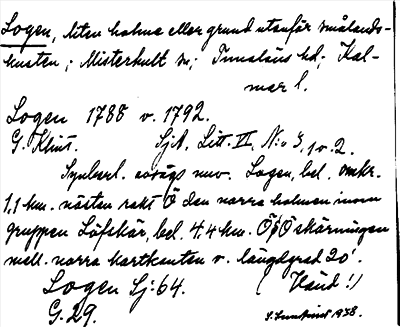 Logen, liten holme eller grund utanför Smålands-
kusten; Misterhult sn; Tunaläns hd; Kal-
mar l.
Logen 1788 o. 1792.
G. Klint. Sjk. Litt. II, N:o 3, 1 o. 2.
Synberl. avvägs nuv. Logen, bel. omkr.
1,1 km. nästan rakt Ö den norra holmen inom
gruppen Löfskär, bel. 4,4 km. Ö skärningen
mell. norra kartkanten o. längdgrad 20'.
Logen Sj: 64. (Händ!)
G. 29. 1938.